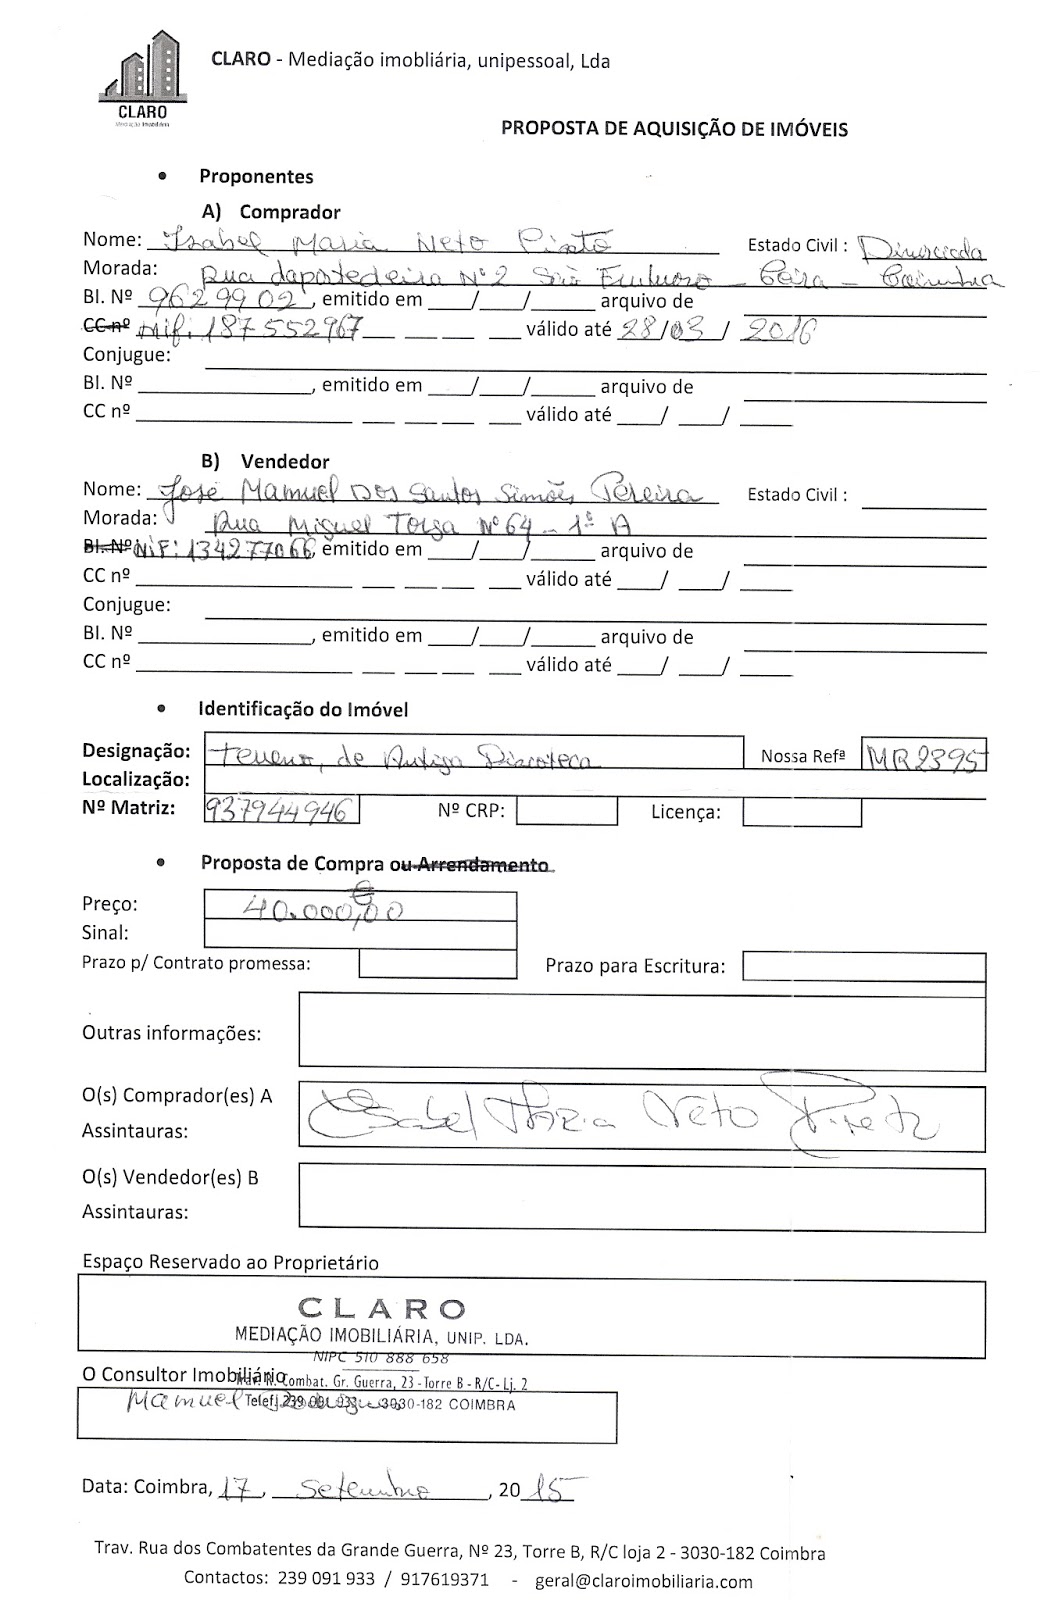 CLARO
Mediação Imobiliária
CLARO - Mediação imobliária, unipessoal, Lda
PROPOSTA DE AQUISIÇÃO DE IMÓVEIS
• Proponentes
A) Comprador
Nome: Isabel Maria Neto Estado Civil : Divorciada
Morada: Rua Nº 2 - Ceira - Coimbra
BI. Nº 9629902, emitido em ___/___/______ arquivo de
CC nº Nif: 187 552 967 válido até 28/03/2016
Conjugue:
BI. Nº ______________, emitido em ___/___/______ arquivo de
CC nº ______________ válido até ____/____/_____
B) Vendedor
Nome: José Manuel Dos Santos Simões Pereira Estado Civil :
Morada: Rua Miguel Torga Nº 64 - 1º A
BI. Nº NiF: 134277066, emitido em ___/___/______ arquivo de
CC nº ______________ válido até ____/____/_____
Conjugue:
BI. Nº ______________, emitido em ___/___/______ arquivo de
CC nº ______________ válido até ____/____/_____
• Identificação do Imóvel
Designação: Terreno, de Antiga Discoteca Nossa Refª MR2395
Localização:
Nº Matriz: 937944946 Nº CRP: Licença:
• Proposta de Compra ou Arrendamento
Preço: 40.000,00 €
Sinal:
Prazo p/ Contrato promessa: Prazo para Escritura:
Outras informações:
O(s) Comprador(es) A
Isabel Maria Neto
Assintauras:
O(s) Vendedor(es) B
Assintauras:
Espaço Reservado ao Proprietário
CLARO
MEDIAÇÃO IMOBILIÁRIA, UNIP. LDA.
NIPC 510 888 658
O Consultor Imobiliário
Trav. R. Combat. Gr. Guerra, 23 - Torre B - R/C - Lj. 2
Manuel
Telef. 239 091 933 - 3030-182 COIMBRA
Data: Coimbra, 17, Setembro, 2015
Trav. Rua dos Combatentes da Grande Guerra, Nº 23, Torre B, R/C loja 2 - 3030-182 Coimbra
Contactos: 239 091 933 / 917619371 - geral@claroimobiliaria.com